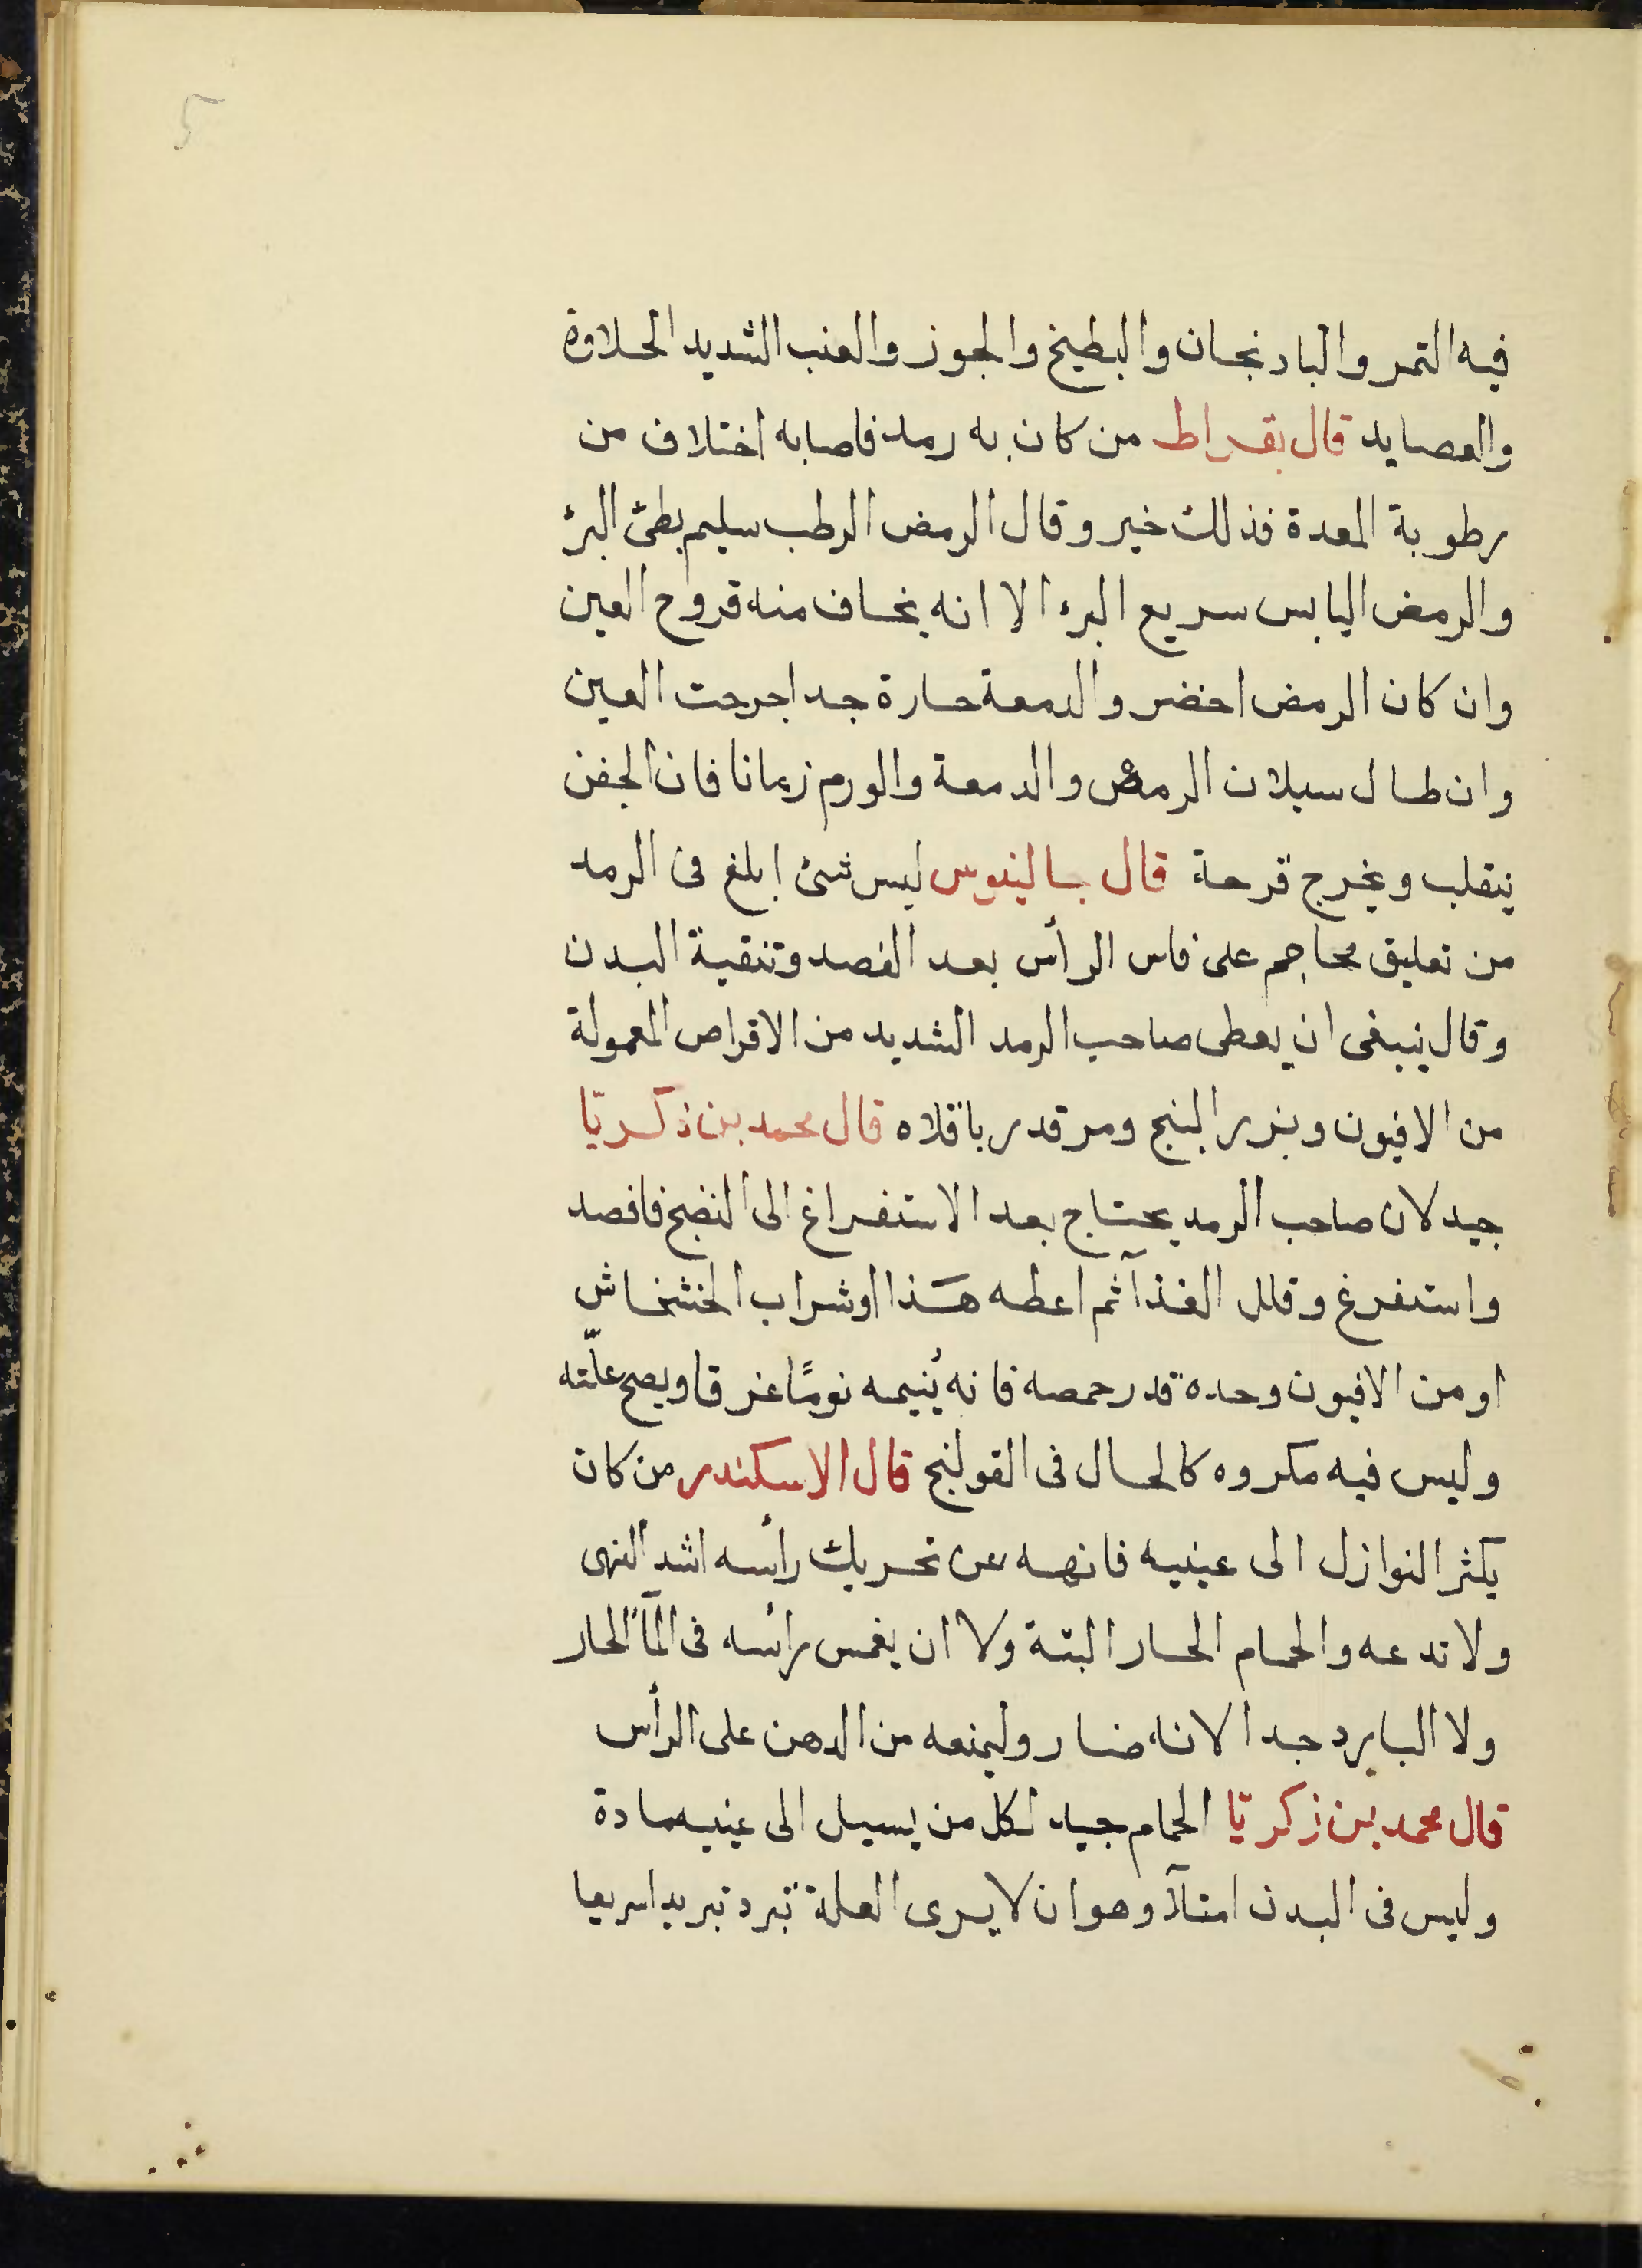 5
فيه التمر والبادنجان والبطيخ والجوز والعنب الشديد الحلاوة
والعصايد قال بقراط من كان به رمد فاصابه اختلاف من
رطوبة المعدة فذلك خير وقال الرمض الرطب سليم بطئ البرئ
والرمض اليابس سريع البرء الا انه يخاف منه قروح العين
وان كان الرمض اخضر والدمعة حارة جدا جرحت العين
وان طال سيلان الرمص والدمعة والورم زمانا فان الجفن
ينقلب ويخرج قرحة قال جالينوس ليس شئ ابلغ فى الرمد
من تعليق محاجم على فاس الرأس بعد الفصد وتنقية البدن
وقال ينبغى ان يعطى صاحب الرمد الشديد من الاقراص المعمولة
من الافيون وبزر البنج ومر قدر باقلاه قال محمد بن زكريّا
جيد لان صاحب الرمد يحتاج بعد الاستفراغ الى النضج فافصد
واستفرغ وقلل الغذآ ثم اعطه هَذا او شراب الخشخاش
او من الافيون وحده قدر حمصه فانه يُنيمه نومًا غرقا ويصح علّته
وليس فيه مكروه كالحال فى القولنج قال الاسكندر من كان
يكثر النوازل الى عينيه فانهه عن تحريك رأسه اشد النهى
ولا تدعه والحمام الحار البتة ولا ان يغمس رأسه فى المآ الحار
ولا البارد جدا لانه ضار وليمنعه من الدهن على الرأس
قال محمد بن زكريّا الحمام جيد لكل من يسيل الى عينيه مادة
وليس فى البدن امتلآ وهو ان لا يرى العلة تبرد تبريدا سريعا